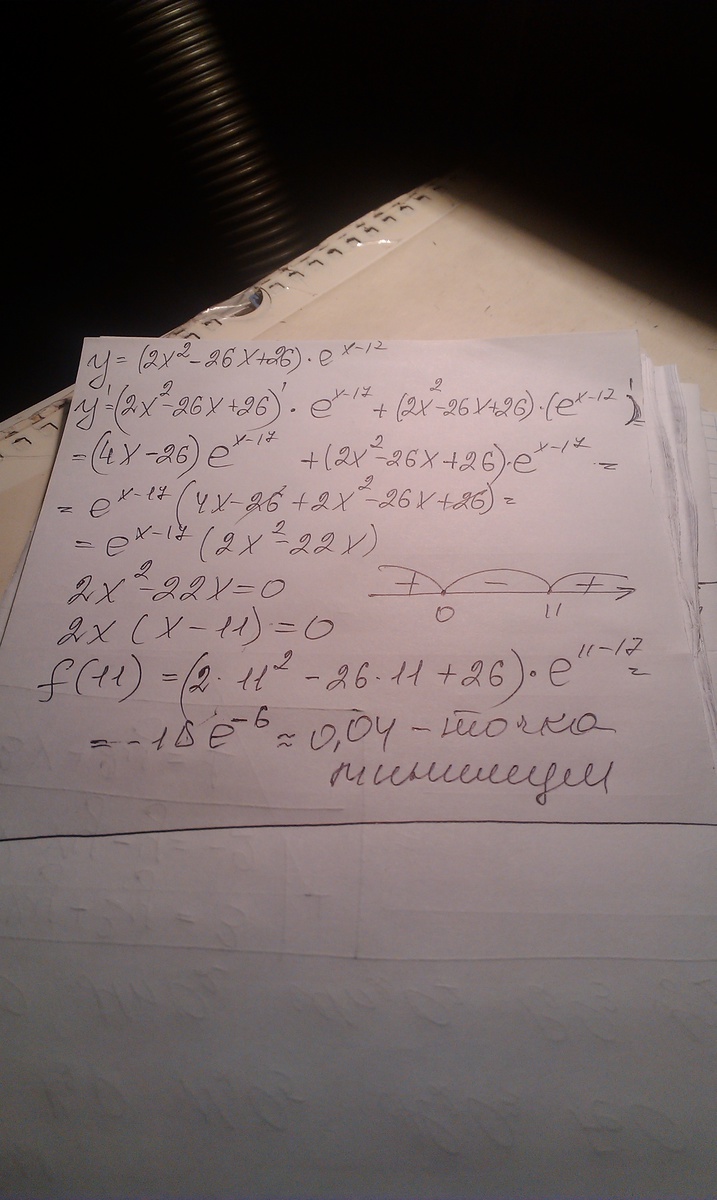 y = (2x² - 26x + 26) · e^(x-17)
y' = (2x² - 26x + 26)' · e^(x-17) + (2x² - 26x + 26) · (e^(x-17))' =
= (4x - 26) e^(x-17) + (2x² - 26x + 26) · e^(x-17) =
= e^(x-17) (4x - 26 + 2x² - 26x + 26) =
= e^(x-17) (2x² - 22x)
2x² - 22x = 0
+ - +
0 11
2x (x - 11) = 0
f(11) = (2 · 11² - 26 · 11 + 26) · e^(11-17) =
= -18 e^(-6) ≈ 0,04 - точка
минимум